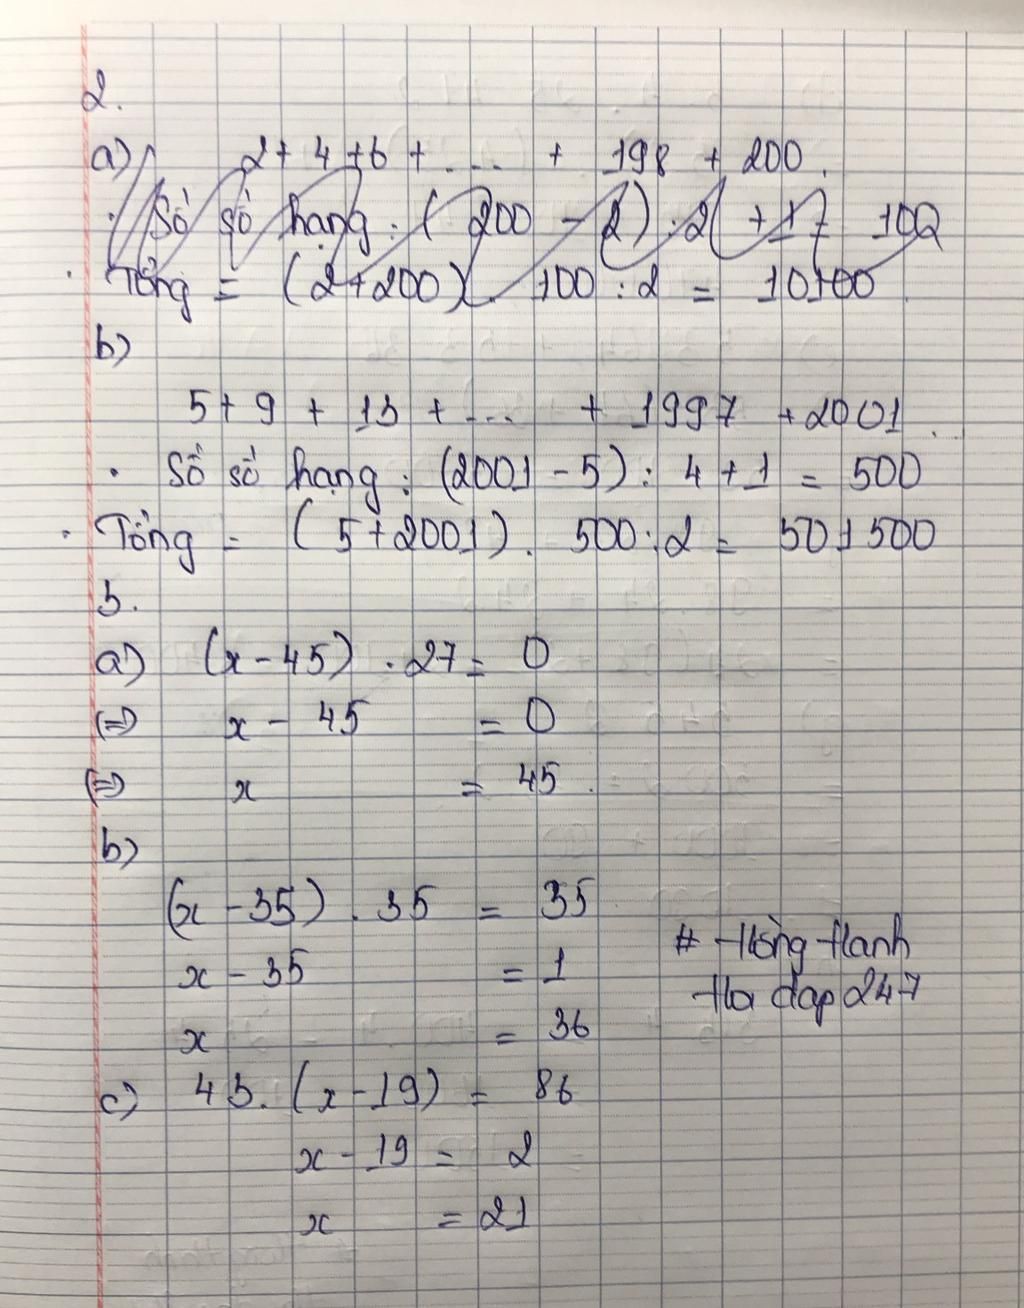 2.
a) 2 + 4 + 6 + ... + 198 + 200.
. Số số hạng : ( 200 - 2) : 2 + 1 100
. Tổng = (2 + 200) . 100 : 2 = 10100.
b)
5 + 9 + 13 + ... + 1997 + 2001.
. Số số hạng : (2001 - 5) : 4 + 1 = 500
. Tổng = ( 5 + 2001) . 500 : 2 = 501 500
3.
a) (x - 45) . 27 = 0
(=) x - 45 = 0
(=) x = 45.
b)
(x - 35) . 35 = 35
x - 35 = 1
x = 36
# Hồng Hanh
Hoi dap 247
c) 43. (x - 19) = 86
x - 19 = 2
x = 21